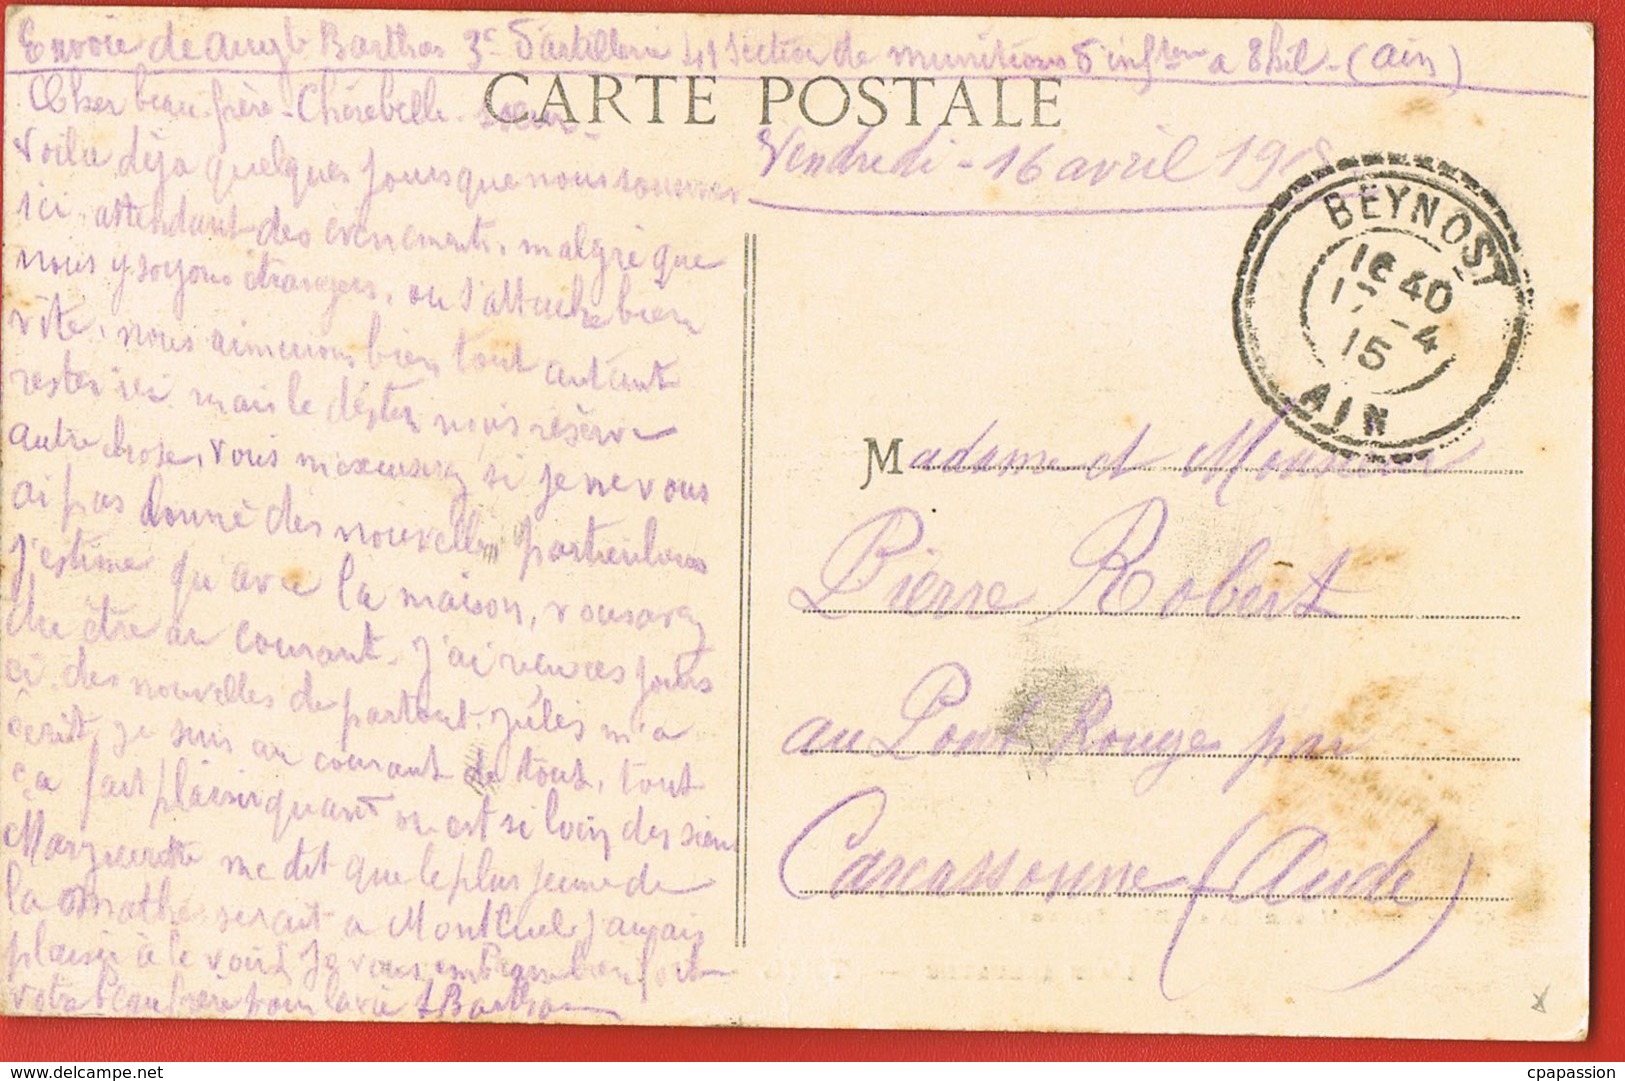 Envoie de Augte Barthas 3e d'artillerie 41 Section de munitions d'inf a Thil - (Ain)
CARTE POSTALE
Cher beau frère - Chère belle - sœur -
Vendredi - 16 avril 1915
Voila déja quelques jours que nous sommes
ici, attendant des évènements, malgré que
nous y soyons étrangers, on s'attache bien
vite, nous aimerions bien tout autant
rester ici mais le déstin nous réserve
autre chose, vous m'excuserez si je ne vous
ai pas donné des nouvelles particulières
j'estime qu'avec la maison, vous avez
du être au courant. J'ai reçu ces jours
ci des nouvelles de partout. Jules m'a
écrit, je suis au courant de tout, tout
ça fait plaisir quant on est si loin des siens
Marguerite me dit que le plus jeune de
la Mathe serait a Montluel j'aurais
plaisir à le voir. Je vous embrasse bien fort
votre beau frère pour la vie ABarthas
BEYNOST
16 40
-4
15
AIN
Madame et Monsieur
Pierre Robert
au Pont Rouge par
Carcassonne (Aude)
cpapassion